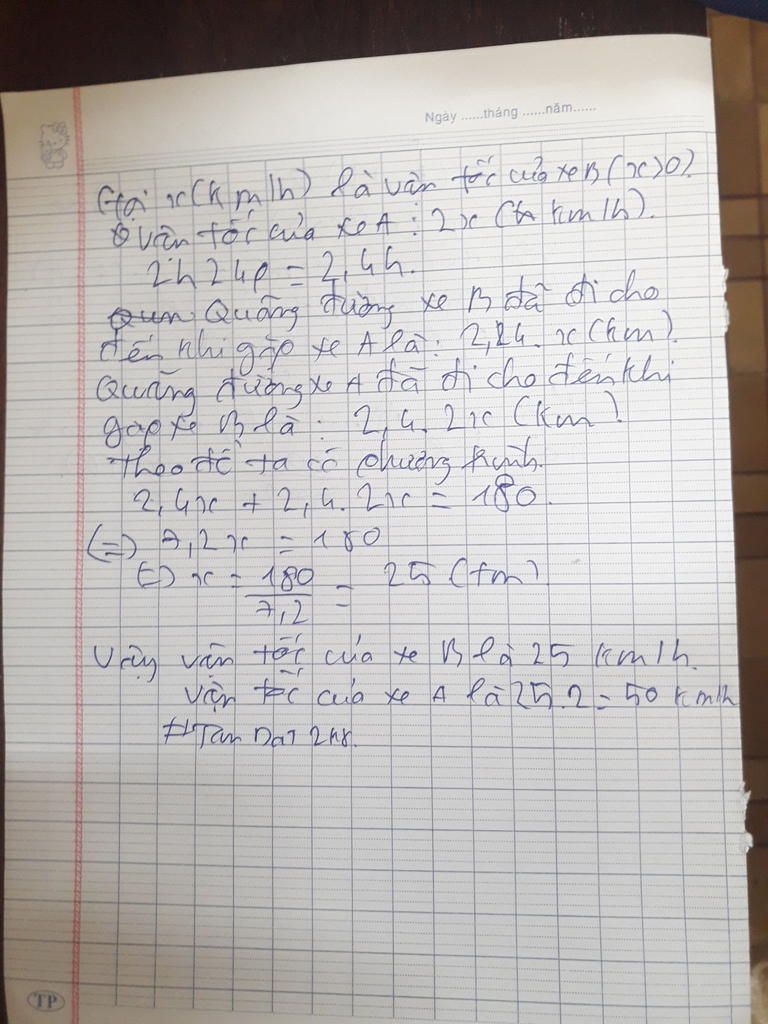 Ngày ......tháng ......năm......
Gọi x (km/h) là vận tốc của xe B (x>0).
Vận tốc của xe A : 2x ( km/h).
2h 24p = 2,4h.
Quãng đường xe B đã đi cho
đến khi gặp xe A là: 2,24. x (km).
Quãng đường xe A đã đi cho đến khi
gặp xe B là : 2,4. 2x (km)
Theo đề ta có phương trình.
2,4x + 2,4. 2x = 180.
(=) 7,2x = 180
(=) x = 180/7,2 = 25 (tm)
Vậy vận tốc của xe B là 25 km/h.
Vận tốc của xe A là 25.2 = 50 km/h
#Tan Dat 2k8.
TP